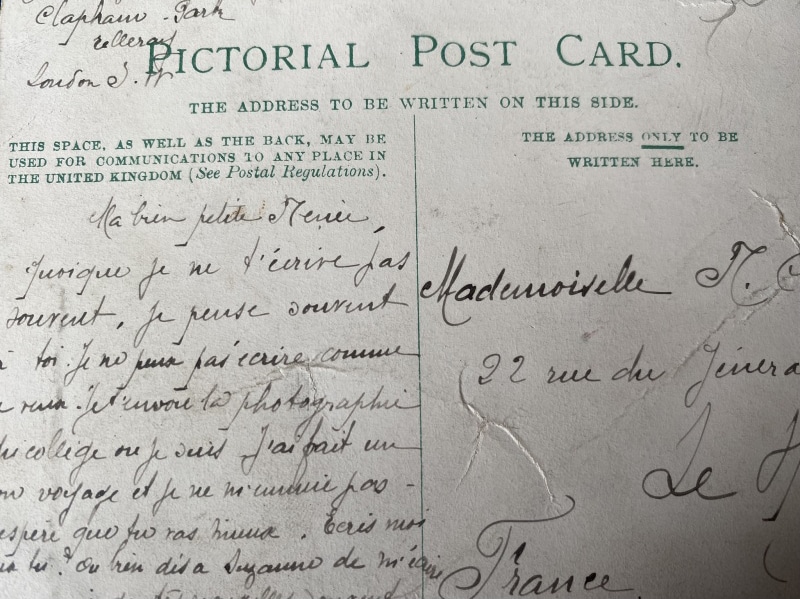 Clapham Park
London S. W
PICTORIAL POST CARD.
THE ADDRESS TO BE WRITTEN ON THIS SIDE.
THIS SPACE, AS WELL AS THE BACK, MAY BE
USED FOR COMMUNICATIONS TO ANY PLACE IN
THE UNITED KINGDOM (See Postal Regulations).
THE ADDRESS ONLY TO BE
WRITTEN HERE.
Ma bien petite
Quoique je ne t'écrive pas
souvent, je pense souvent
à toi. Je ne peux pas écrire comme
je veux. Je t'envoie la photographie
du collège ou je suis J'ai fait un
bon voyage et je ne m'ennuie pas -
espère que tu vas mieux. Ecris moi
tu ? Ou bien dis a Suzanne de m'écrire
Mademoiselle
22 rue du
Le
France